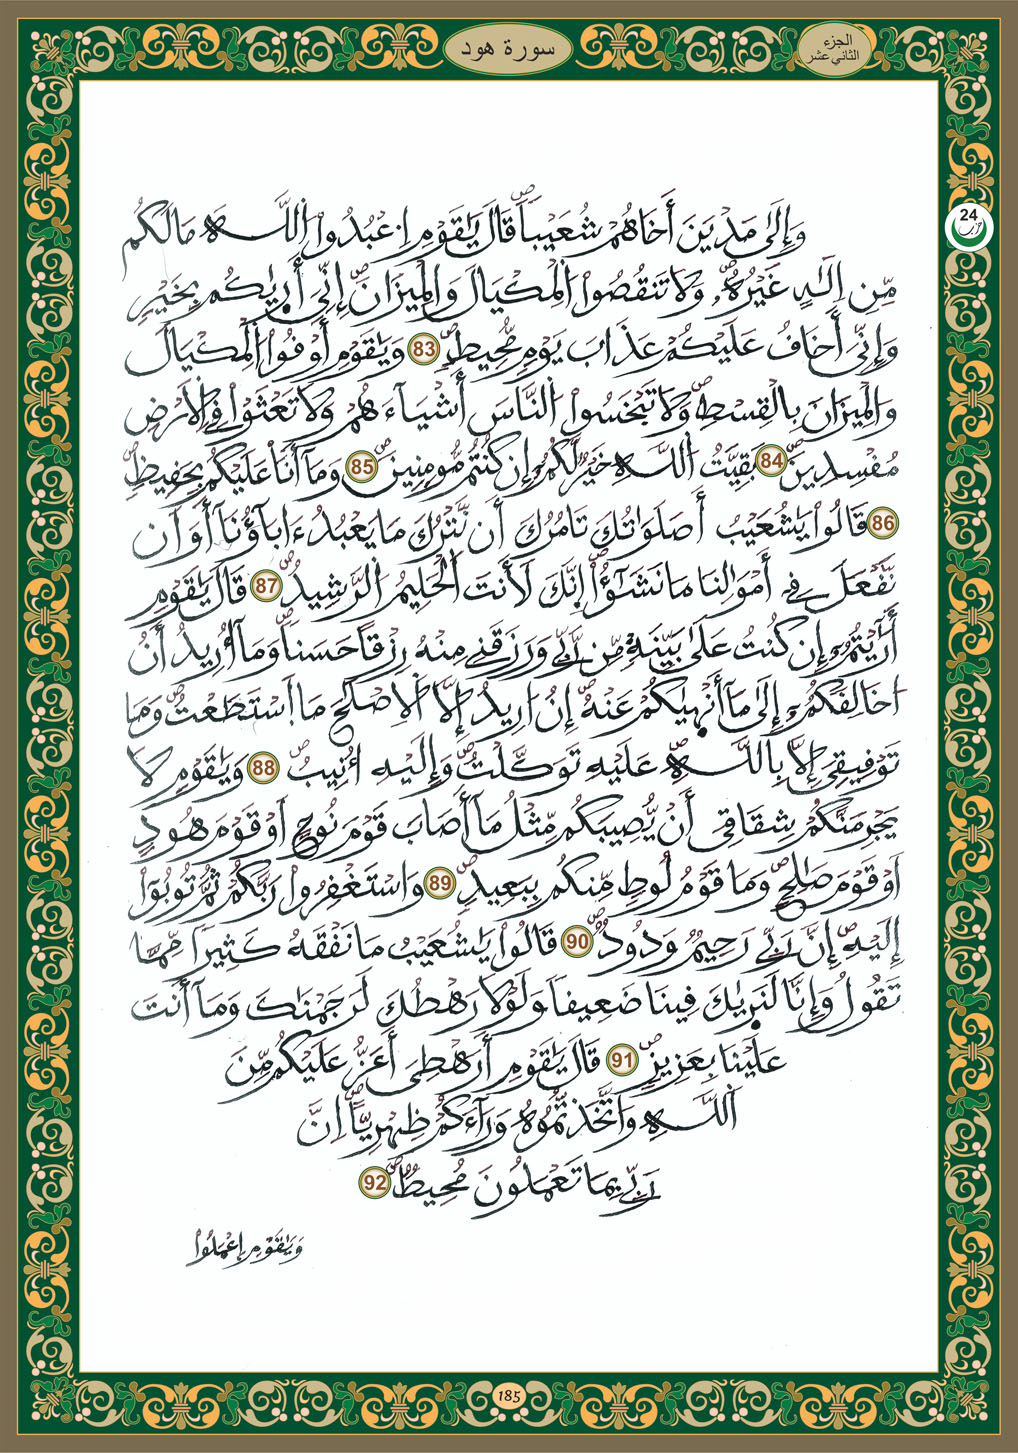 سورة هود
الجزء
الثاني عشر
24
حزب
وَإِلَىٰ مَدْيَنَ أَخَاهُمْ شُعَيْباً قَالَ يَٰقَوْمِ اِ۟عْبُدُوا۟ اُ۬للَّهَ مَا لَكُم
مِّنِ اِلَٰهٍ غَيْرُهُۥ وَلَا تَنقُصُوا۟ اُ۬لْمِكْيَالَ وَالْمِيزَانَ إِنِّيَ أَر۪يٰكُم بِخَيْرٍ
وَإِنِّيَ أَخَافُ عَلَيْكُمْ عَذَابَ يَوْمٍ مُّحِيطٍ 83 وَيَٰقَوْمِ أَوْفُوا۟ اُ۬لْمِكْيَالَ
وَالْمِيزَانَ بِالْقِسْطِ وَلَا تَبْخَسُوا۟ اُ۬لنَّاسَ أَشْيَآءَهُمْ وَلَا تَعْثَوْا۟ فِے اِ۬لَارْضِ
مُفْسِدِينَ 84 بَقِيَّتُ اُ۬للَّهِ خَيْرٌ لَّكُمُۥٓ إِن كُنتُم مُّومِنِينَ 85 وَمَآ أَنَا عَلَيْكُم بِحَفِيظٍ
86 قَالُوا۟ يَٰشُعَيْبُ أَصَلَوَٰتُكَ تَامُرُكَ أَن نَّتْرُكَ مَا يَعْبُدُ ءَابَآؤُنَآ أَوَ اَن
نَّفْعَلَ فِےٓ أَمْوَٰلِنَا مَا نَشَٰٓؤُا۟ اِنَّكَ لَأَنتَ اَ۬لْحَلِيمُ اُ۬لرَّشِيدُ 87 قَالَ يَٰقَوْمِ
أَرَٰٓيْتُمُۥٓ إِن كُنتُ عَلَىٰ بَيِّنَةٍ مِّن رَّبِّے وَرَزَقَنِے مِنْهُ رِزْقاً حَسَناً وَمَآ أُرِيدُ أَنُ
اخَالِفَكُمُۥٓ إِلَىٰ مَآ أَنْه۪يٰكُمْ عَنْهُ إِنُ ا۟رِيدُ إِلَّا اَ۬لِاصْلَٰحَ مَا اَ۪سْتَطَعْتُ وَمَا
تَوْفِيقِيَ إِلَّا بِاللَّهِ عَلَيْهِ تَوَكَّلْتُ وَإِلَيْهِ أُنِيبُ 88 وَيَٰقَوْمِ لَا
يَجْرِمَنَّكُمْ شِقَاقِيَ أَن يُّصِيبَكُم مِّثْلُ مَآ أَصَابَ قَوْمَ نُوحٍ اَوْ قَوْمَ هُودٍ
اَوْ قَوْمَ صَٰلِحٍ وَمَا قَوْمُ لُوطٍ مِّنكُم بِبَعِيدٍ 89 وَاسْتَغْفِرُوا۟ رَبَّكُمْ ثُمَّ تُوبُوٓا۟
إِلَيْهِ إِنَّ رَبِّے رَحِيمٌ وَدُودٌ 90 قَالُوا۟ يَٰشُعَيْبُ مَا نَفْقَهُ كَثِيراً مِّمَّا
تَقُولُ وَإِنَّا لَنَر۪يٰكَ فِينَا ضَعِيفاً وَلَوْلَا رَهْطُكَ لَرَجَمْنَٰكَ وَمَآ أَنتَ
عَلَيْنَا بِعَزِيزٍ 91 قَالَ يَٰقَوْمِ أَرَهْطِيَ أَعَزُّ عَلَيْكُم مِّنَ
اَ۬للَّهِ وَاتَّخَذتُّمُوهُ وَرَآءَكُمْ ظِهْرِيّاً اِنَّ
رَبِّے بِمَا تَعْمَلُونَ مُحِيطٌ 92
وَيَٰقَوْمِ اِعْمَلُوا۟
185